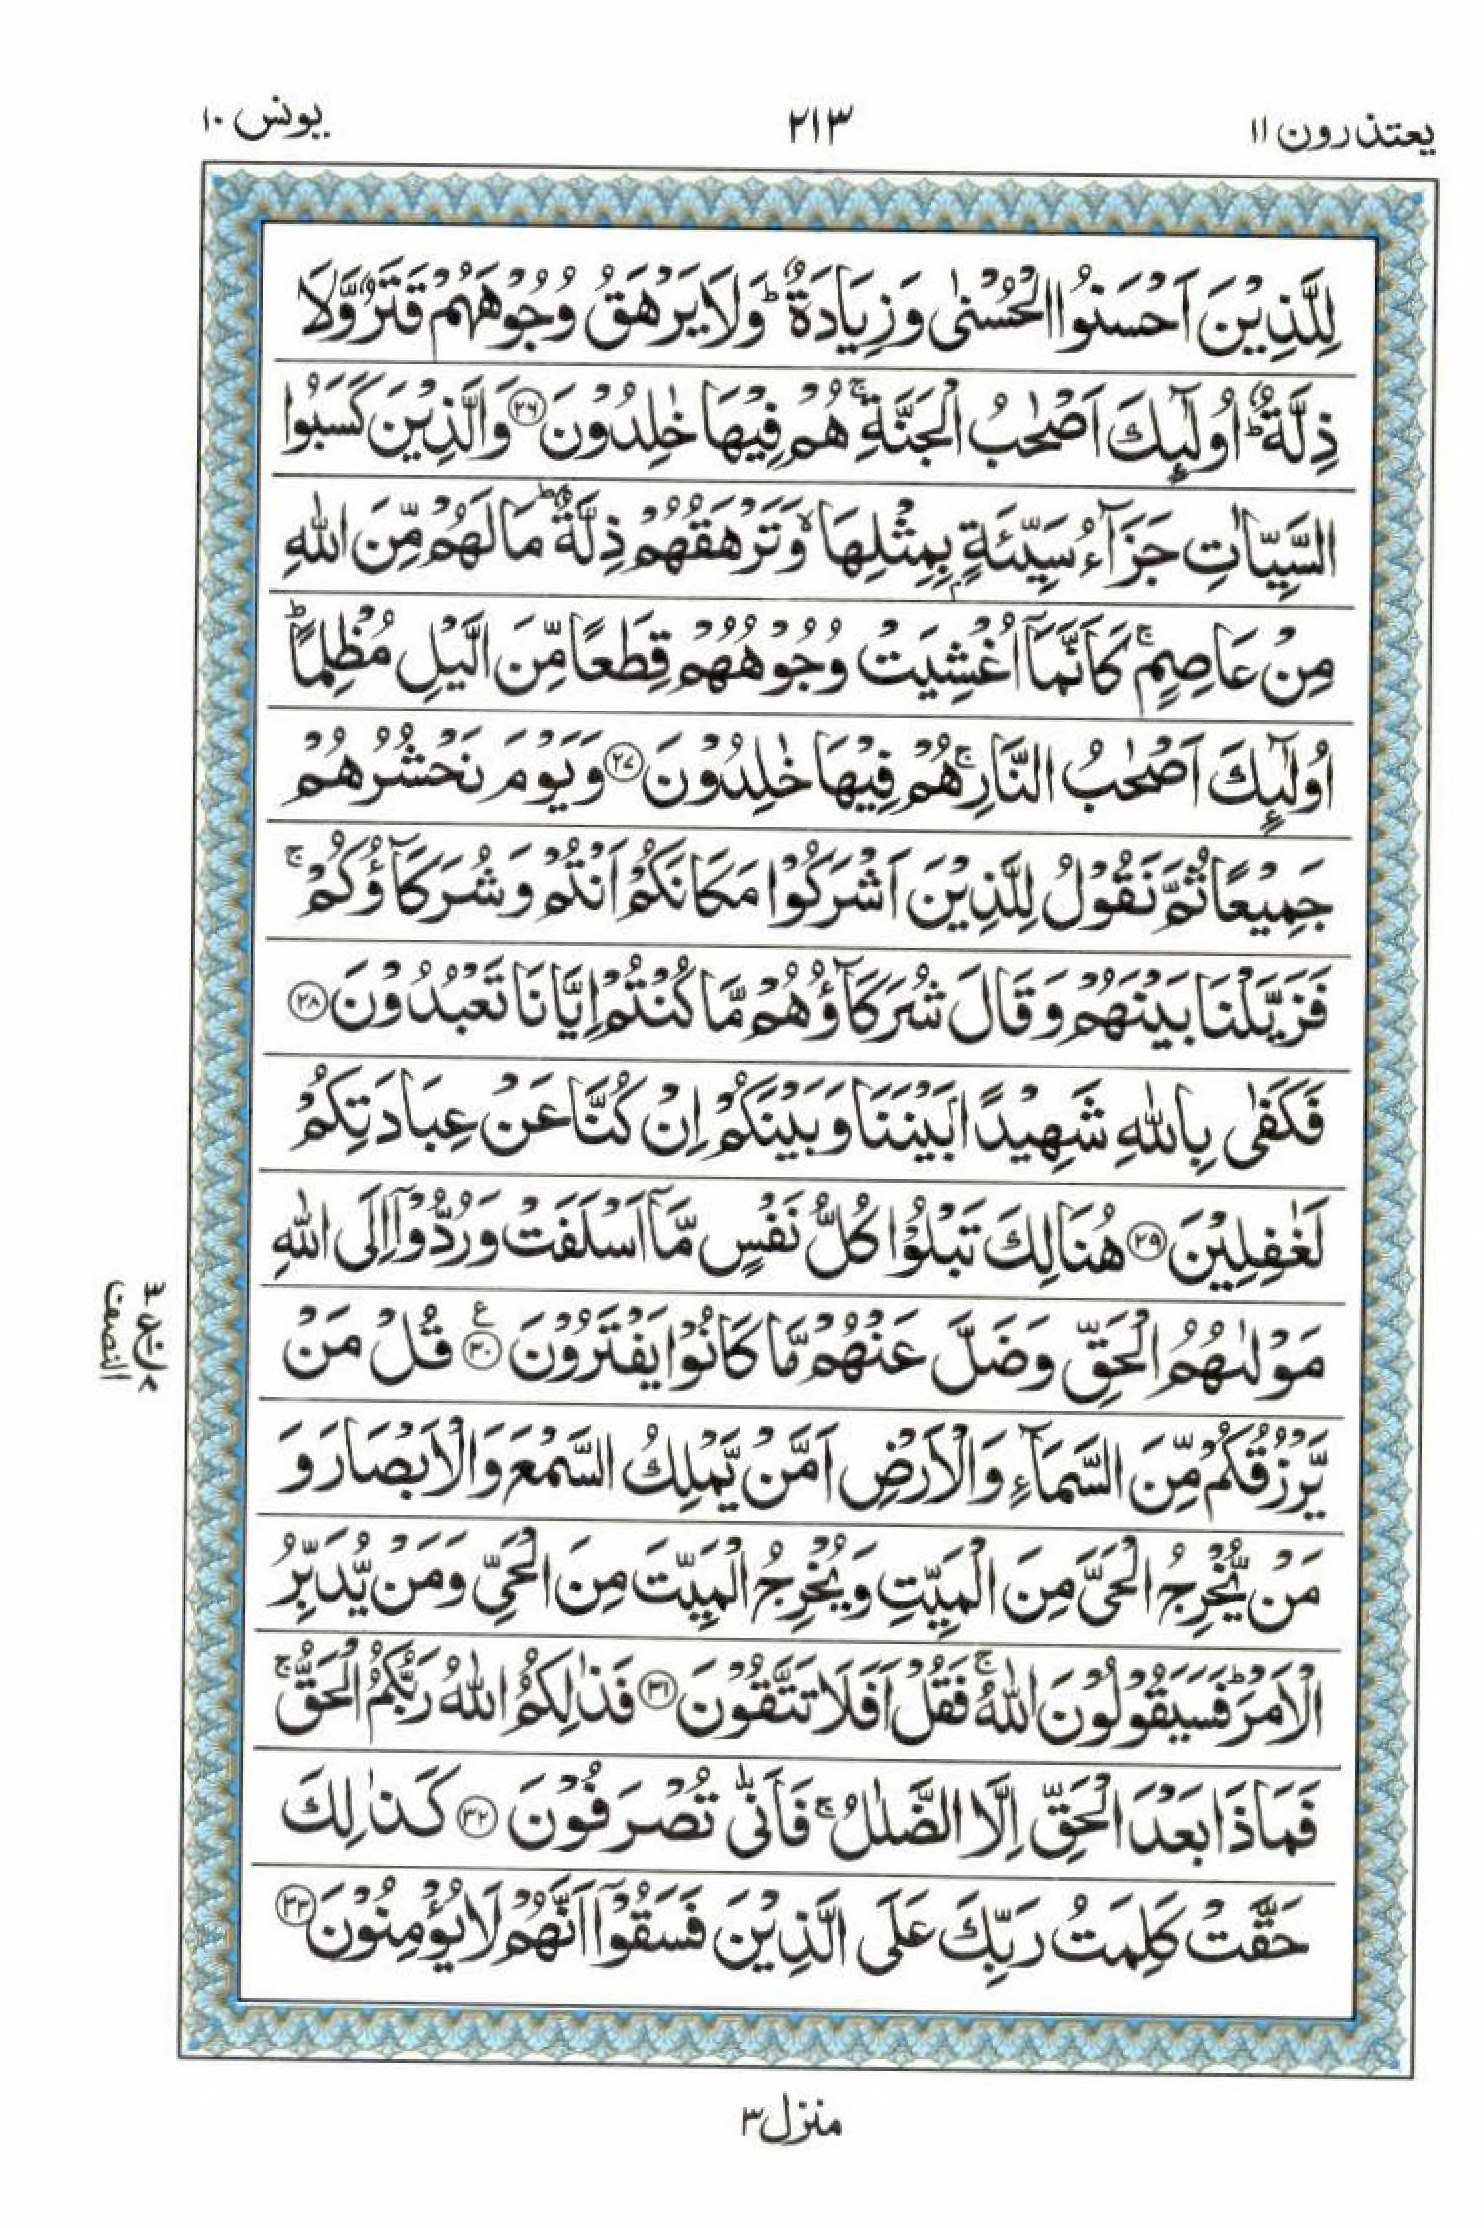 يعتذرون ١١
٢١٣
يونس ١٠
لِلَّذِيْنَ اَحْسَنُوا الْحُسْنٰى وَزِيَادَةٌ ؕ وَلَا يَرْهَقُ وُجُوْهَهُمْ قَتَرٌ وَّلَا
ذِلَّةٌ ؕ اُولٰٓئِكَ اَصْحٰبُ الْجَنَّةِ ۚ هُمْ فِيْهَا خٰلِدُوْنَ ﴿۲۶﴾ وَالَّذِيْنَ كَسَبُوا
السَّيِّاٰتِ جَزَآءُ سَيِّئَةٍۭ بِمِثْلِهَا ۙ وَتَرْهَقُهُمْ ذِلَّةٌ ؕ مَا لَهُمْ مِّنَ اللّٰهِ
مِنْ عَاصِمٍ ۚ كَاَنَّمَاۤ اُغْشِيَتْ وُجُوْهُهُمْ قِطَعًا مِّنَ الَّيْلِ مُظْلِمًا ؕ
اُولٰٓئِكَ اَصْحٰبُ النَّارِ ۚ هُمْ فِيْهَا خٰلِدُوْنَ ﴿۲۷﴾ وَيَوْمَ نَحْشُرُهُمْ
جَمِيْعًا ثُمَّ نَقُوْلُ لِلَّذِيْنَ اَشْرَكُوْا مَكَانَكُمْ اَنْتُمْ وَشُرَكَآؤُكُمْ ۚ
فَزَيَّلْنَا بَيْنَهُمْ وَقَالَ شُرَكَآؤُهُمْ مَّا كُنْتُمْ اِيَّانَا تَعْبُدُوْنَ ﴿۲۸﴾
فَكَفٰى بِاللّٰهِ شَهِيْدًۢا بَيْنَنَا وَبَيْنَكُمْ اِنْ كُنَّا عَنْ عِبَادَتِكُمْ
لَغٰفِلِيْنَ ﴿۲۹﴾ هُنَالِكَ تَبْلُوْا كُلُّ نَفْسٍ مَّاۤ اَسْلَفَتْ وَرُدُّوْۤا اِلَى اللّٰهِ
مَوْلٰىهُمُ الْحَقِّ وَضَلَّ عَنْهُمْ مَّا كَانُوْا يَفْتَرُوْنَ ﴿۳۰﴾ ع قُلْ مَنْ
يَّرْزُقُكُمْ مِّنَ السَّمَآءِ وَالْاَرْضِ اَمَّنْ يَّمْلِكُ السَّمْعَ وَالْاَبْصَارَ وَ
مَنْ يُّخْرِجُ الْحَيَّ مِنَ الْمَيِّتِ وَيُخْرِجُ الْمَيِّتَ مِنَ الْحَيِّ وَمَنْ يُّدَبِّرُ
الْاَمْرَ ؕ فَسَيَقُوْلُوْنَ اللّٰهُ ۚ فَقُلْ اَفَلَا تَتَّقُوْنَ ﴿۳۱﴾ فَذٰلِكُمُ اللّٰهُ رَبُّكُمُ الْحَقُّ ۚ
فَمَاذَا بَعْدَ الْحَقِّ اِلَّا الضَّلٰلُ ۚ فَاَنّٰى تُصْرَفُوْنَ ﴿۳۲﴾ كَذٰلِكَ
حَقَّتْ كَلِمَتُ رَبِّكَ عَلَى الَّذِيْنَ فَسَقُوْۤا اَنَّهُمْ لَا يُؤْمِنُوْنَ ﴿۳۳﴾
النصف
منزل ٣